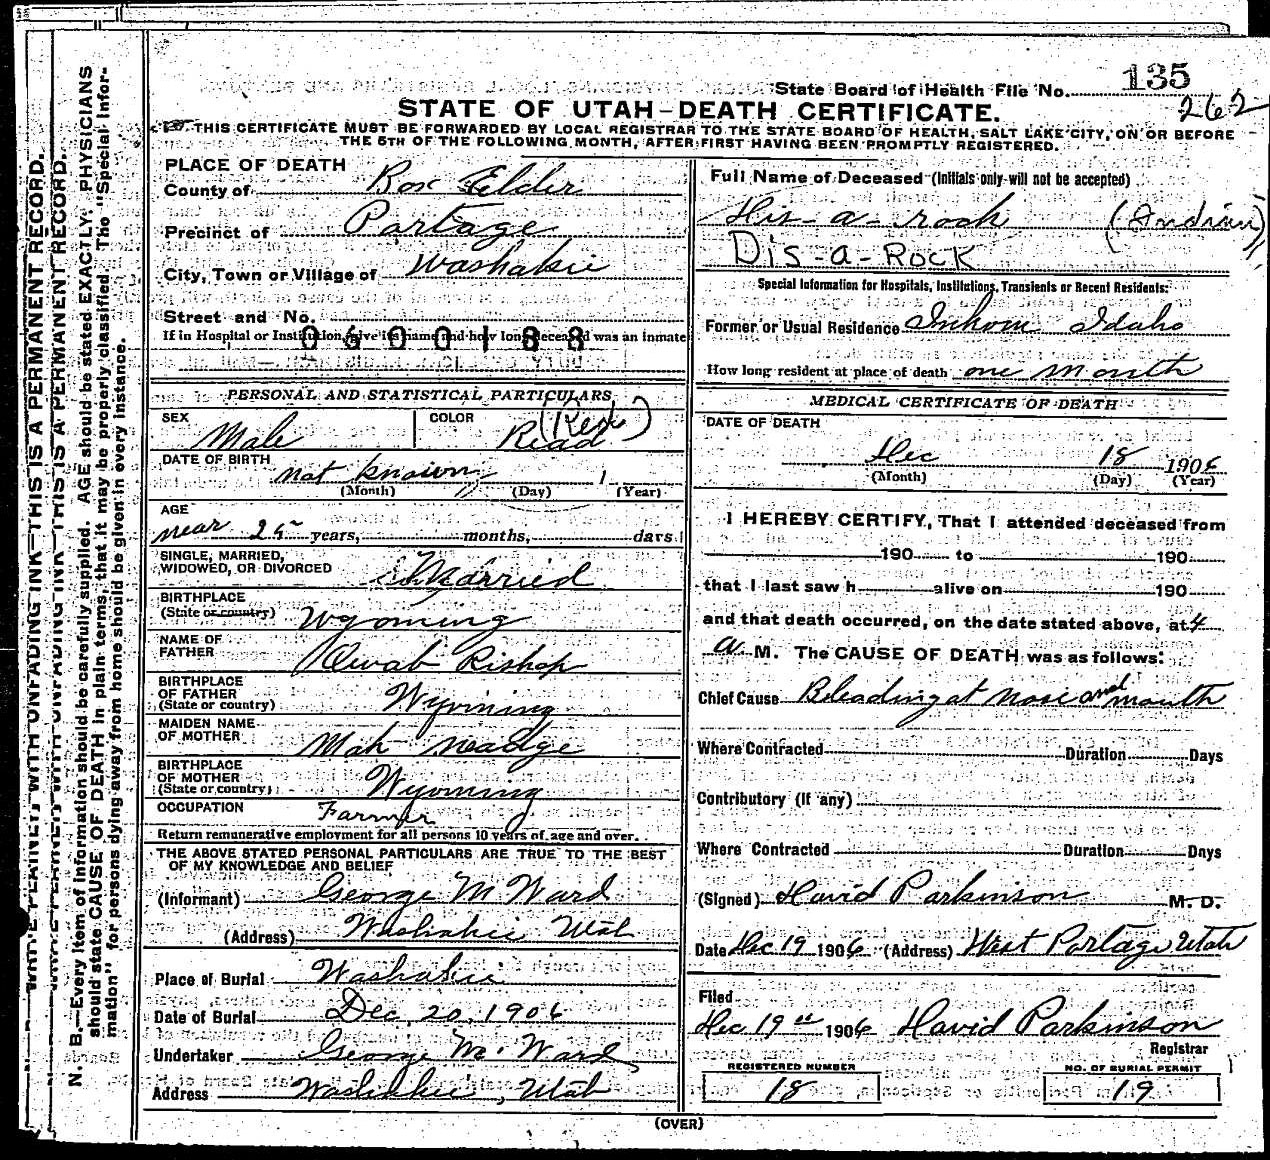 State Board of Health File No. 135
262
STATE OF UTAH—DEATH CERTIFICATE.
THIS CERTIFICATE MUST BE FORWARDED BY LOCAL REGISTRAR TO THE STATE BOARD OF HEALTH, SALT LAKE CITY, ON OR BEFORE
THE 5TH OF THE FOLLOWING MONTH, AFTER FIRST HAVING BEEN PROMPTLY REGISTERED.
PLACE OF DEATH
County of Box Elder
Precinct of Portage
City, Town or Village of Washakie
Street and No.
If in Hospital or Institution give its name and how long deceased was an inmate
0600188
PERSONAL AND STATISTICAL PARTICULARS
SEX Male
COLOR Read (Red)
DATE OF BIRTH not known 1
(Month) (Day) (Year)
AGE
near 25 years, months, days
SINGLE, MARRIED,
WIDOWED, OR DIVORCED Married
BIRTHPLACE
(State or country) Wyoming
NAME OF
FATHER Quab Bishop
BIRTHPLACE
OF FATHER
(State or country) Wyoming
MAIDEN NAME
OF MOTHER Mah neadge
BIRTHPLACE
OF MOTHER
(State or country) Wyoming
OCCUPATION Farmer
Return remunerative employment for all persons 10 years of age and over.
THE ABOVE STATED PERSONAL PARTICULARS ARE TRUE TO THE BEST
OF MY KNOWLEDGE AND BELIEF
(Informant) George M Ward
(Address) Washakie Utah
Place of Burial Washakie
Date of Burial Dec. 20, 1906
Undertaker George M. Ward
Address Washakie, Utah
Full Name of Deceased (Initials only will not be accepted)
Dis-a-rock (Indian)
DIS-a-ROCK
Special Information for Hospitals, Institutions, Transients or Recent Residents:
Former or Usual Residence Inkom Idaho
How long resident at place of death one month
MEDICAL CERTIFICATE OF DEATH
DATE OF DEATH
Dec 18 1906
(Month) (Day) (Year)
I HEREBY CERTIFY, That I attended deceased from
190 to 190
that I last saw h alive on 190
and that death occurred, on the date stated above, at 4
a. M. The CAUSE OF DEATH was as follows:
Chief Cause Bleading at nose and mouth
Where Contracted Duration Days
Contributory (If any)
Where Contracted Duration Days
(Signed) David Parkinson M. D.
Date Dec 19 1906 (Address) West Portage Utah
Filed
Dec 19 1906 David Parkinson
Registrar
REGISTERED NUMBER
18
NO. OF BURIAL PERMIT
19
(OVER)
WRITE PLAINLY, WITH UNFADING INK—THIS IS A PERMANENT RECORD.
N. B.—Every item of information should be carefully supplied. AGE should be stated EXACTLY. PHYSICIANS
should state CAUSE OF DEATH in plain terms, that it may be properly classified. The "Special Infor-
mation" for persons dying away from home should be given in every instance.